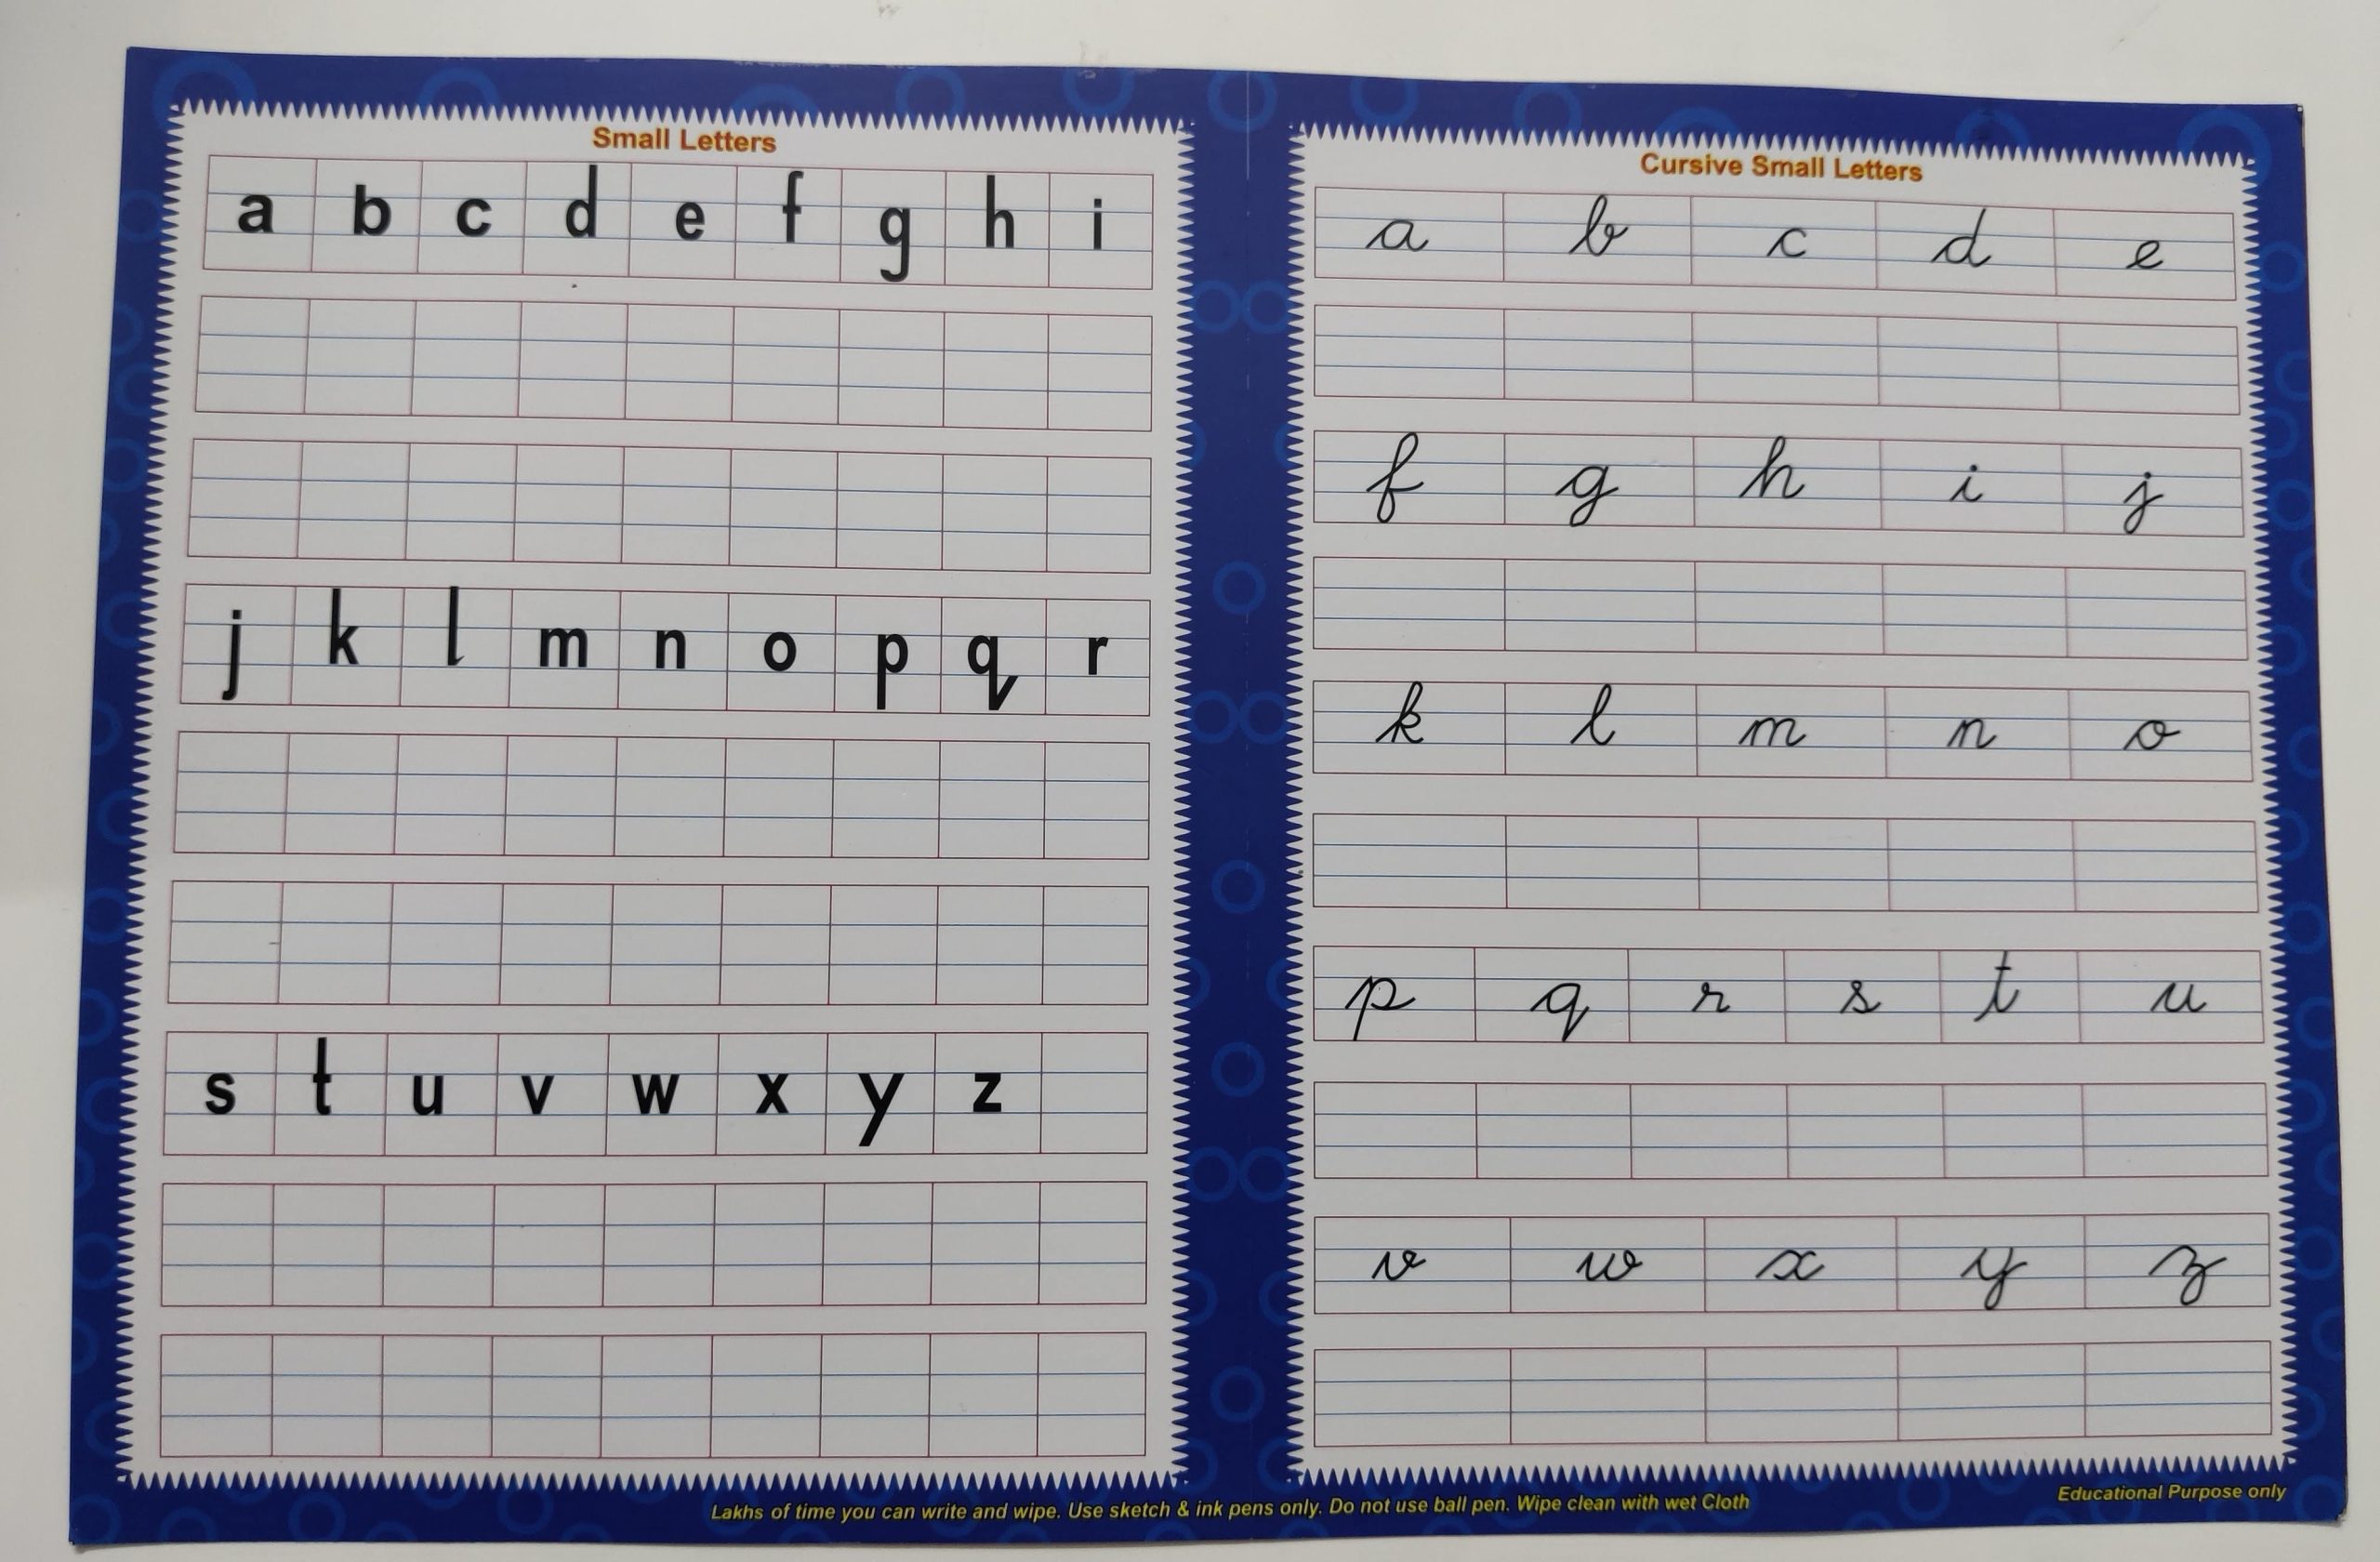 Small Letters
a b c d e f g h i
j k l m n o p q r
s t u v w x y z
Cursive Small Letters
a b c d e
f g h i j
k l m n o
p q r s t u
v w x y z
Lakhs of time you can write and wipe. Use sketch & ink pens only. Do not use ball pen. Wipe clean with wet Cloth
Educational Purpose only